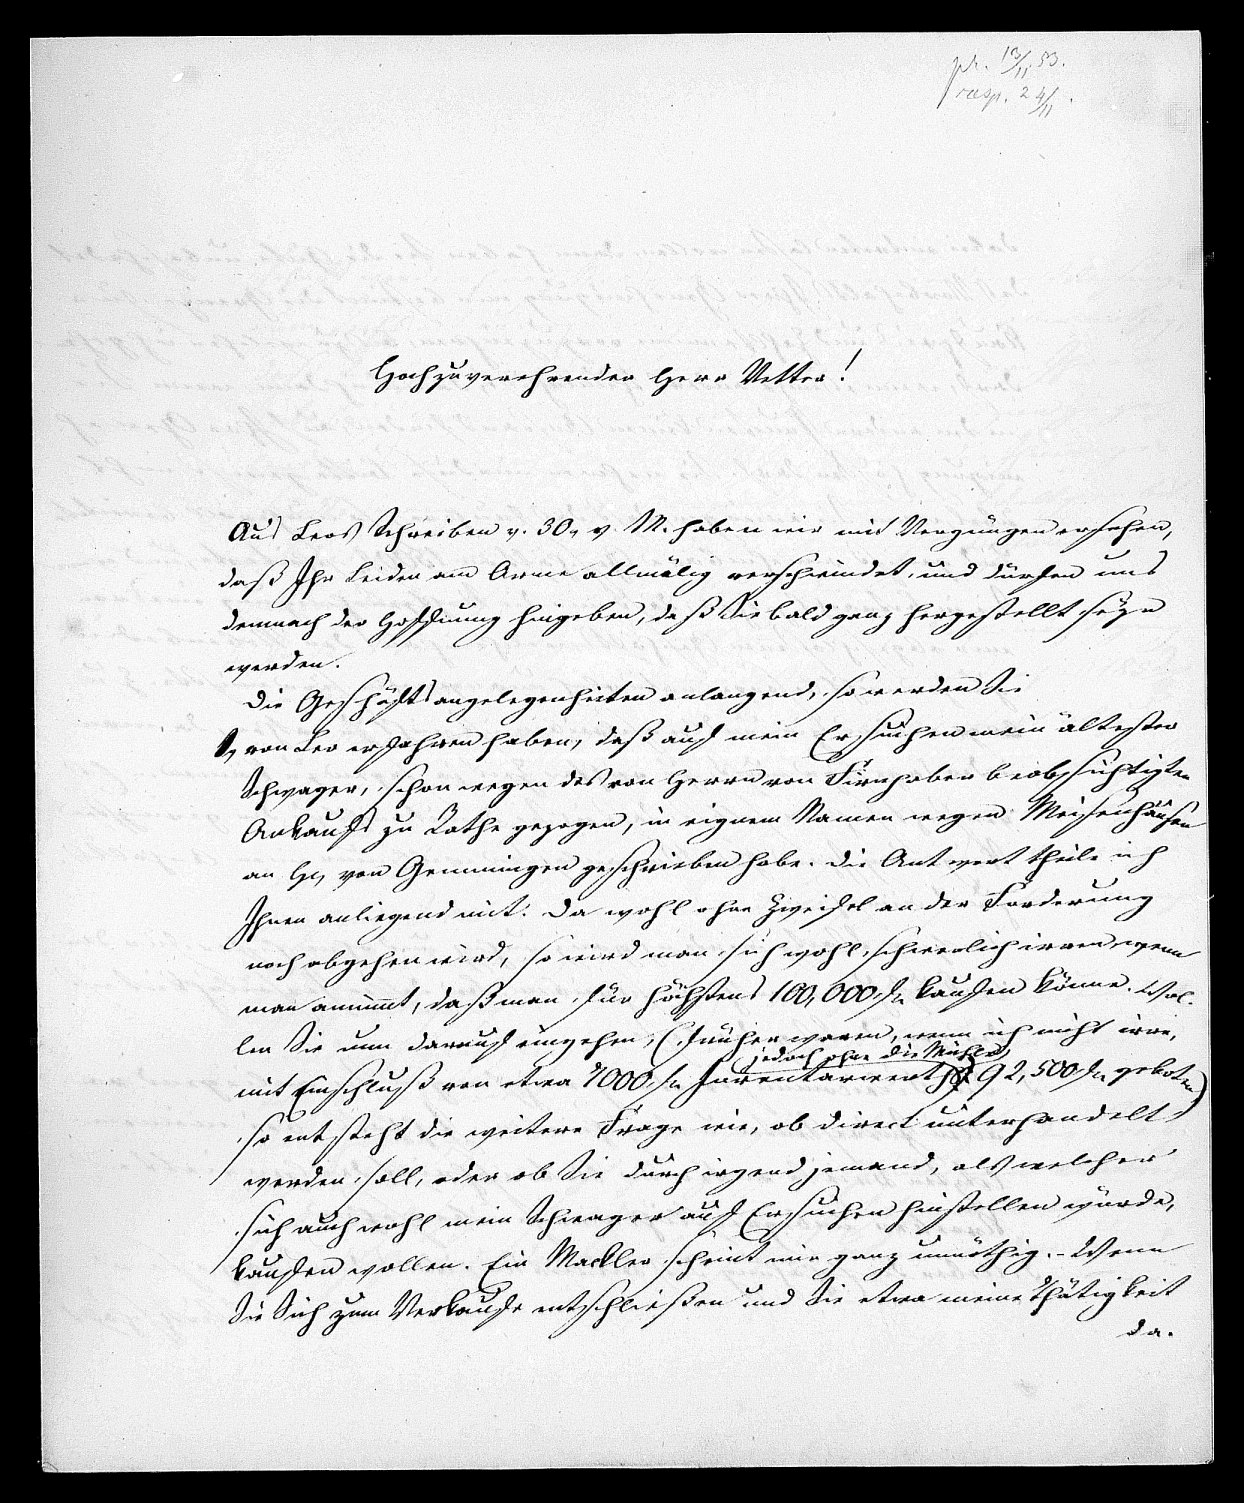 pr. 13/11. 53.
resp. 24/11.
Hochzuverehrender Herr Vetter!
Aus Leos Schreiben v. 30. v. M. haben wir mit Vergnügen ersehen,
daß Ihr Leiden am Arme allmälig verschwindet, und dürfen uns
demnach der Hoffnung hingeben, daß Sie bald ganz hergestellt seyn
werden.
Die Geschäftsangelegenheiten anlangend, so werden Sie
von Leo erfahren haben, daß auf mein Ersuchen mein ältester
Schwager, schon wegen des von Herrn von Firnhaber beabsichtigten
Ankaufs zu Rathe gezogen, in eignem Namen wegen Meisenhäusen
an H. von Gemmingen geschrieben habe. Die Antwort theile ich
Ihnen anliegend mit. Da wohl ohne Zweifel an der Forderung
noch abgehen wird, so wird man sich wohl schwerlich irren wenn
man annimmt, daß man für höchstens 100,000 fl. kaufen könne. Wol-
len Sie nun darauf eingehen, (früher waren, wenn ich nicht irre,
jedoch ohne die Mühle,
mit Einschluß von etwa 7000 fl. Inventarwerth 92,500 fl. geboten)
so entsteht die weitere Frage wie, ob direct unterhandelt
werden soll, oder ob Sie durch irgend jemand, als welcher
sich auch wohl mein Schwager auf Ersuchen hinstellen würde,
kaufen wollen. Ein Mackler scheint mir ganz unnöthig. - Wenn
Sie Sich zum Verkaufe entschließen und Sie etwa meine Thätigkeit
da-